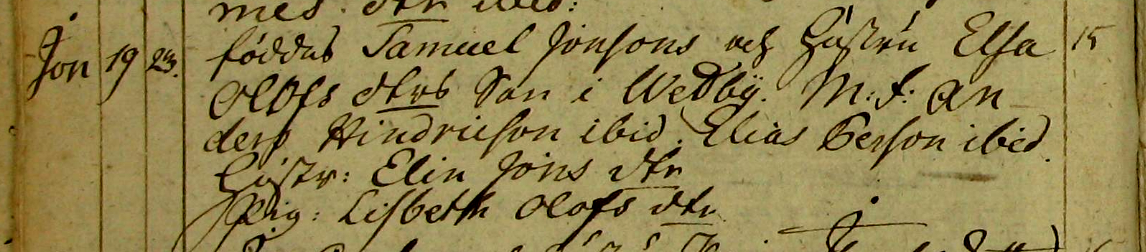 mes. dtr ibid:
Jon 19 23. föddes Samuel Jonsons och hustru Elsa 15
Olofs dtrs Son i Wedby. M: f: An
ders Hindricson ibid. Elias Person ibid.
Hustr: Elin Jöns dtr
Pig: Lisbeth Olofs dtr